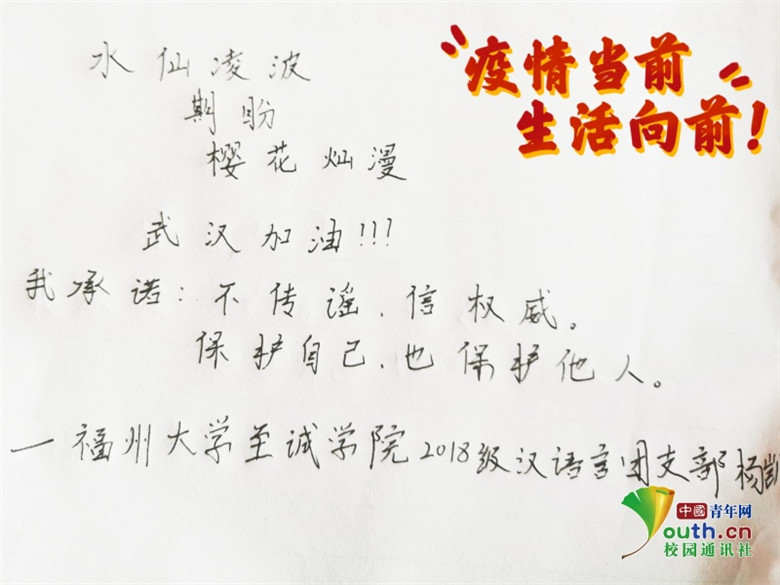 疫情当前
生活向前!
水仙凌波
期盼
樱花灿漫
武汉加油!!!
我承诺:不传谣、信权威。
保护自己、也保护他人。
—福州大学至诚学院2018级汉语言团支部杨凯
中國青年网
Youth.cn
校园通讯社